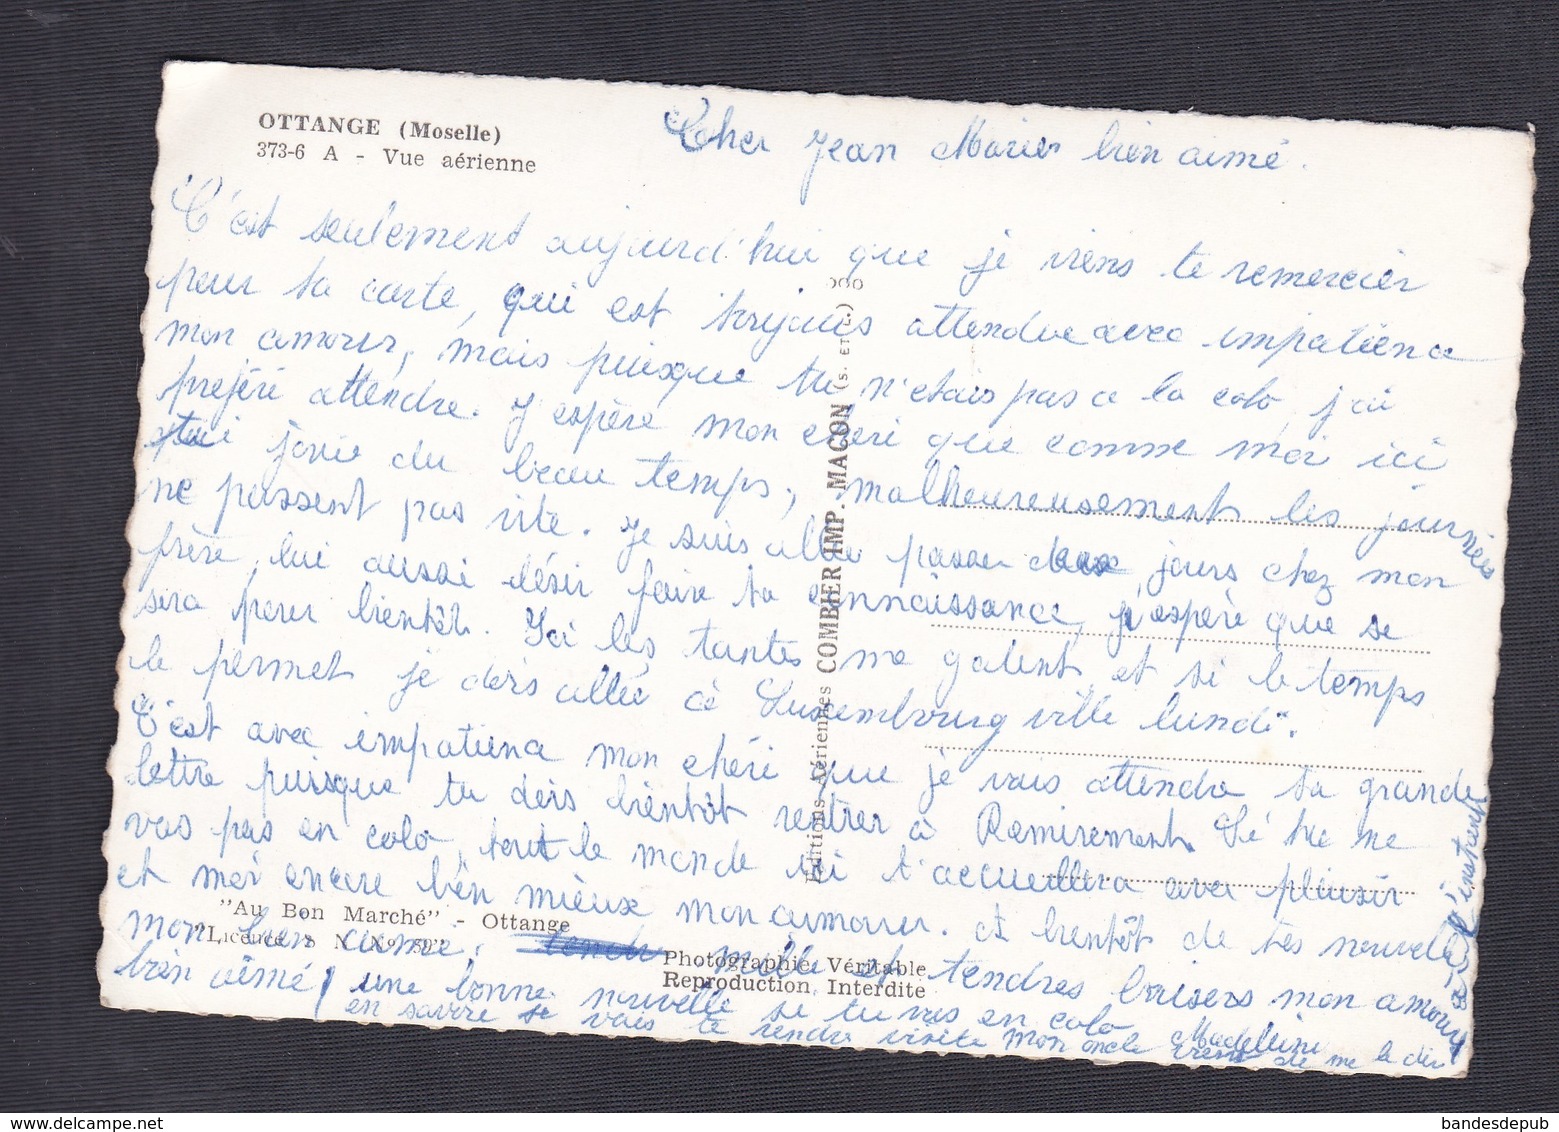 OTTANGE (Moselle)
373-6 A - Vue aérienne
Cher Jean Marie bien aimé.
C'est seulement aujourd'hui que je viens te remercier
pour ta carte, qui est toujours attendue avec impatience
mon amour, mais puisque tu n'etais pas a la colo j'ai
préféré attendre. J'espère mon chéri que comme moi ici
tu jouie du beau temps, malheureusement les journées
ne passent pas vite. Je suis allée passer jours chez mon
frère, lui aussi désir faire ta connaissance, j'espère que se
sera pour bientôt. Ici les tantes me gatent, et si le temps
le permet je dois allée à Luxembourg ville lundi.
C'est avec impatience mon chéri que je vais attendre ta grande
lettre puisque tu dois bientôt rentrer à Remiremont. Si tu ne
vas pas en colo, tout le monde ici t'accueillera avec plaisir
et moi encore bien mieux mon amour. A bientôt de tes nouvelles
mon bien aimé. mille et tendres baisers mon amour
bien aimé
Madeleine
une bonne nouvelle si tu vas en colo
en Savoie je vais te rendre visite mon oncle vient de me le dire
à l'instant
"Au Bon Marché" - Ottange
Photographie Véritable
Reproduction Interdite
Editions Aériennes COMBIER IMP. MACON (S. ET L.)
bandesdepub